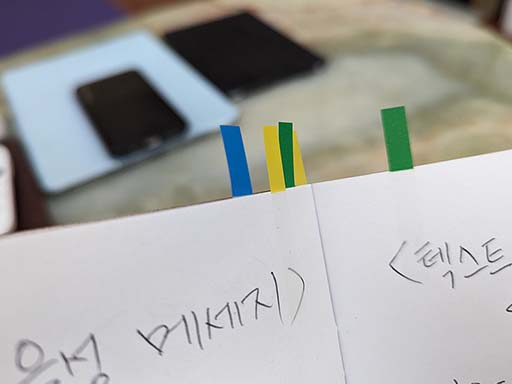 음성 메세지>
<텍스트